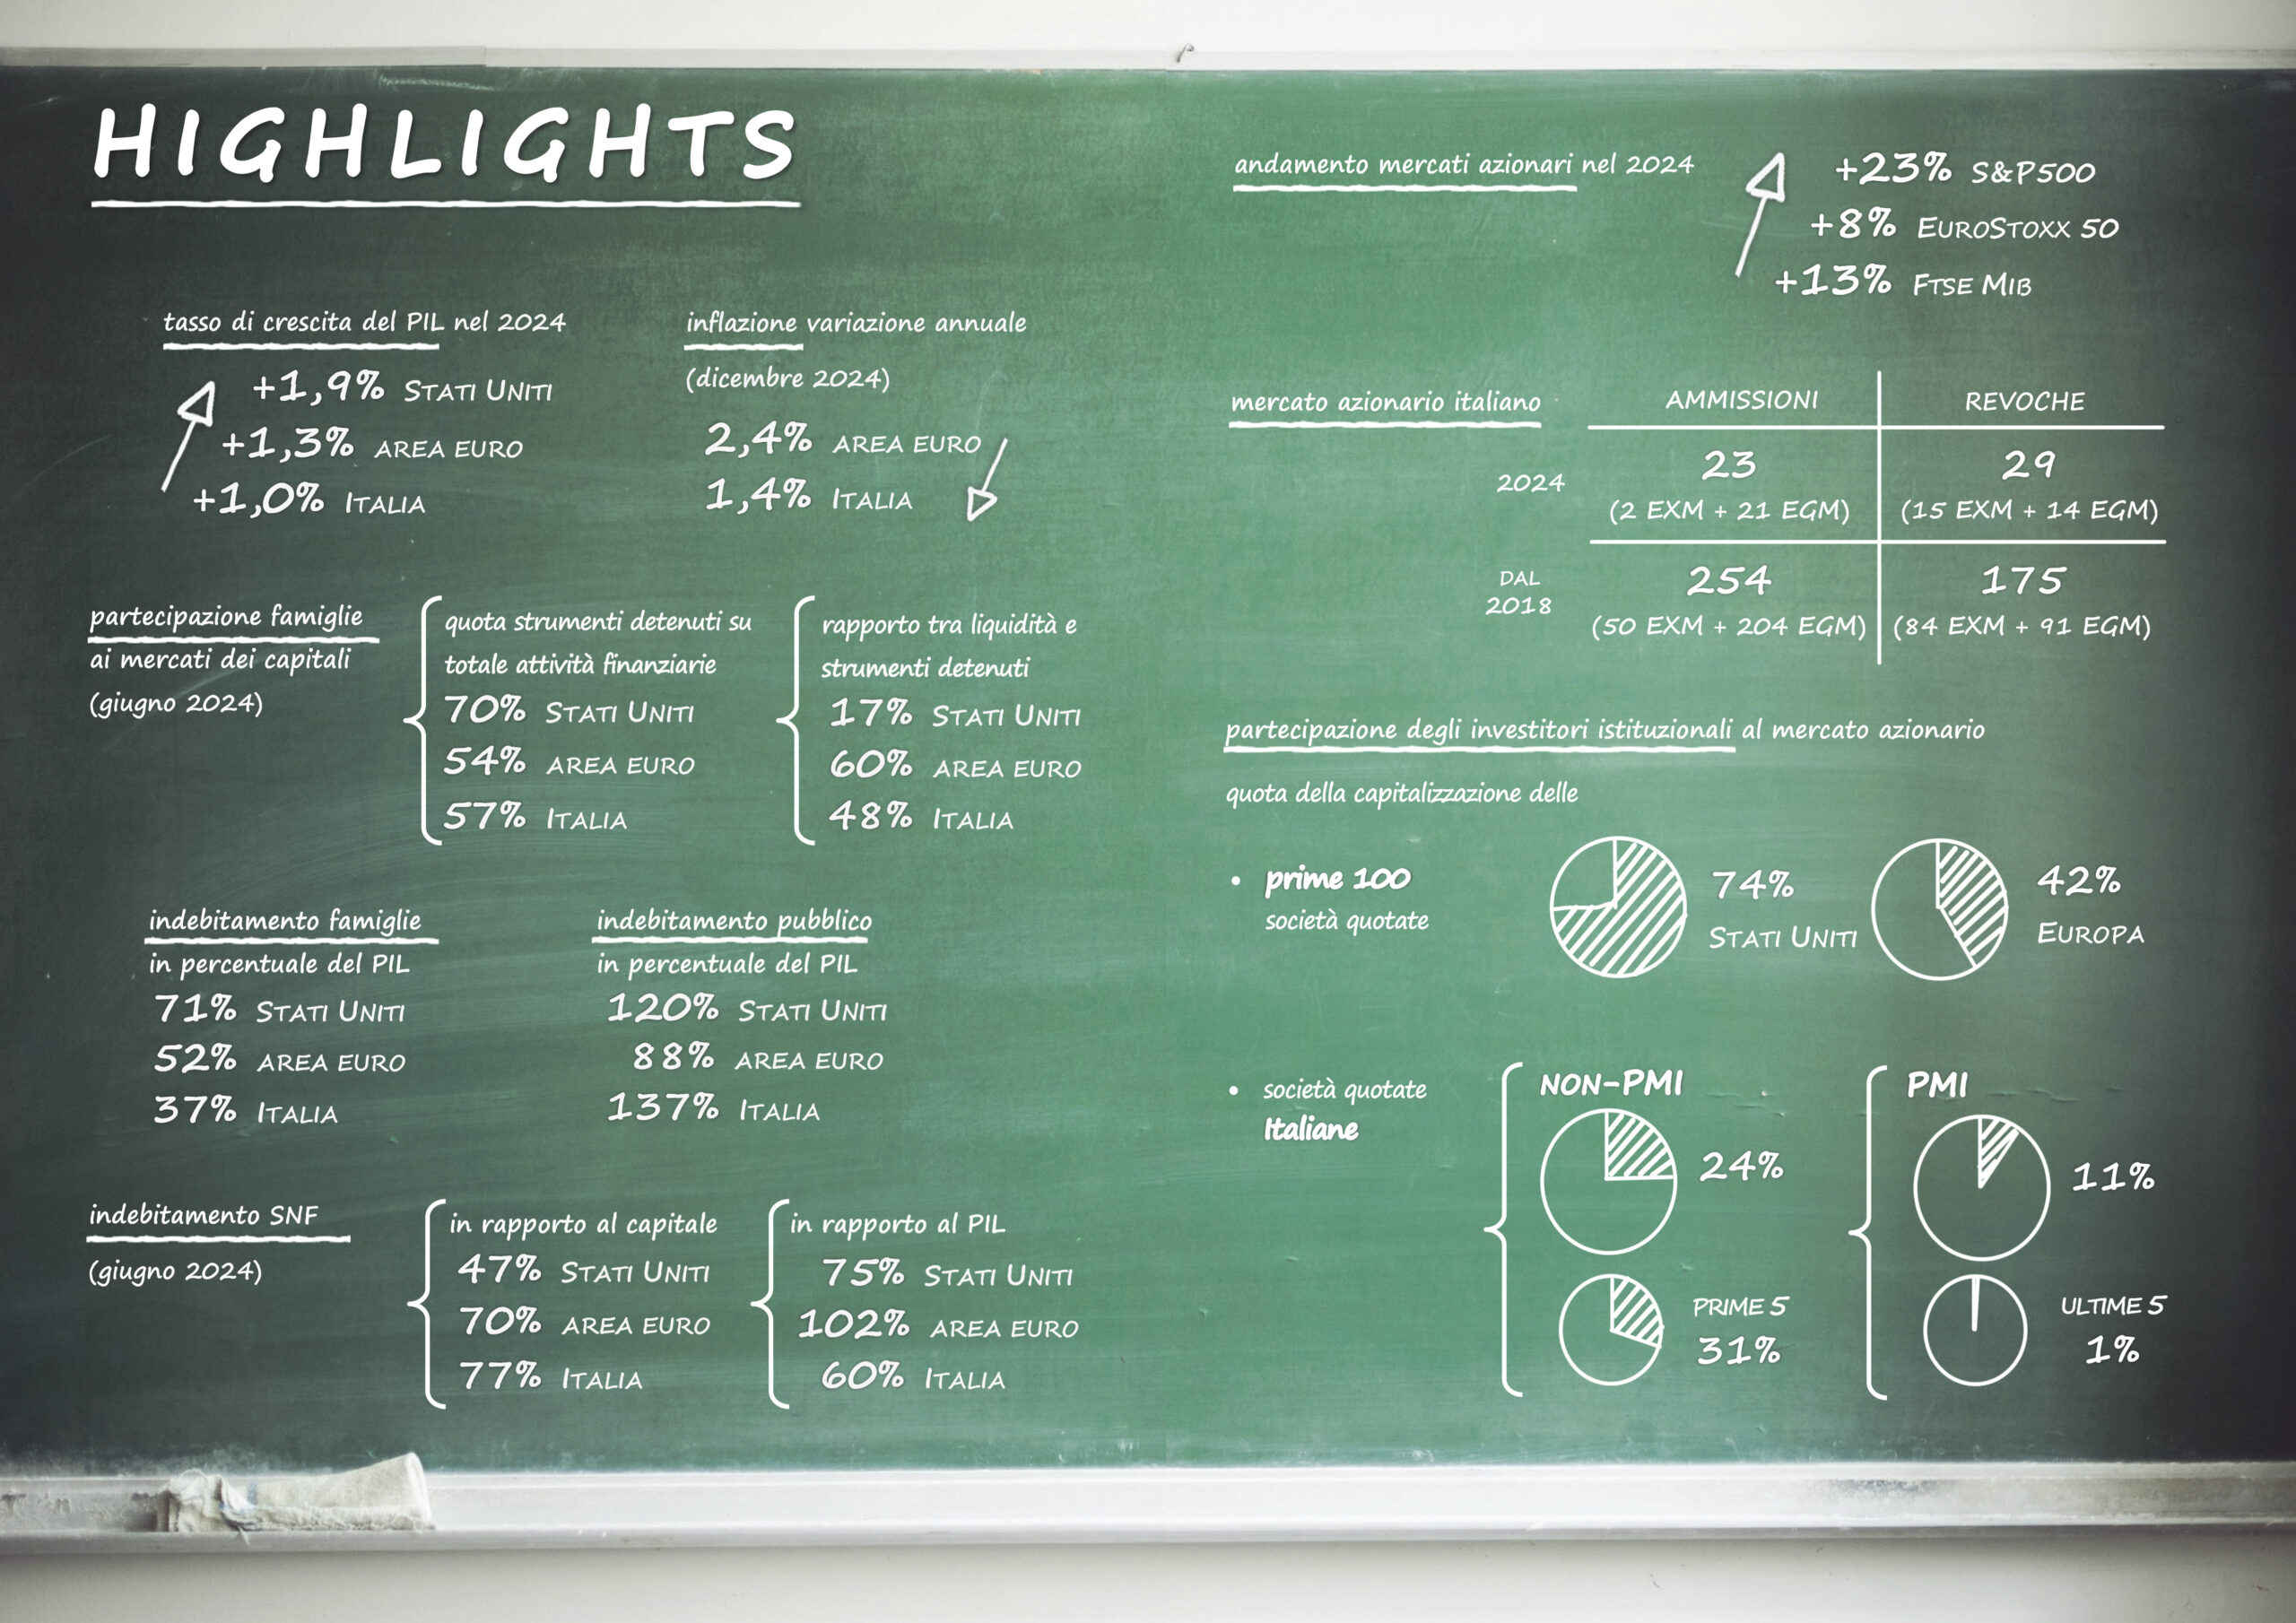 HIGHLIGHTS
tasso di crescita del PIL nel 2024
+1,9% STATI UNITI
+1,3% AREA EURO
+1,0% ITALIA
inflazione variazione annuale
(dicembre 2024)
2,4% AREA EURO
1,4% ITALIA
partecipazione famiglie
ai mercati dei capitali
(giugno 2024)
quota strumenti detenuti su
totale attività finanziarie
70% STATI UNITI
54% AREA EURO
57% ITALIA
rapporto tra liquidità e
strumenti detenuti
17% STATI UNITI
60% AREA EURO
48% ITALIA
indebitamento famiglie
in percentuale del PIL
71% STATI UNITI
52% AREA EURO
37% ITALIA
indebitamento pubblico
in percentuale del PIL
120% STATI UNITI
88% AREA EURO
137% ITALIA
indebitamento SNF
(giugno 2024)
in rapporto al capitale
47% STATI UNITI
70% AREA EURO
77% ITALIA
in rapporto al PIL
75% STATI UNITI
102% AREA EURO
60% ITALIA
andamento mercati azionari nel 2024
+23% S&P500
+8% EUROSTOXX 50
+13% FTSE MIB
mercato azionario italiano
AMMISSIONI REVOCHE
2024
23 29
(2 EXM + 21 EGM) (15 EXM + 14 EGM)
DAL
2018
254 175
(50 EXM + 204 EGM) (84 EXM + 91 EGM)
partecipazione degli investitori istituzionali al mercato azionario
quota della capitalizzazione delle
• prime 100
società quotate
74%
STATI UNITI
42%
EUROPA
• società quotate
Italiane
NON-PMI
24%
PRIME 5
31%
PMI
11%
ULTIME 5
1%